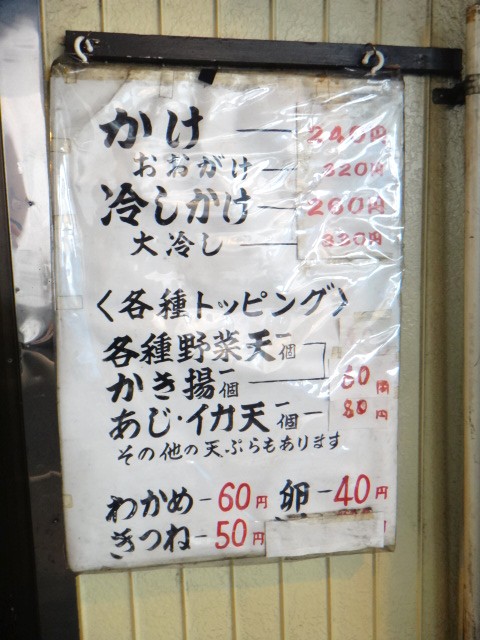 かけ — 240円
おおがけ — 320円
冷しかけ — 260円
大冷し — 330円
〈各種トッピング〉
各種野菜天一個
かき揚一個 — 60円
あじ・イカ天一個 — 80円
その他の天ぷらもあります
わかめ-60円 卵-40円
きつね-50円